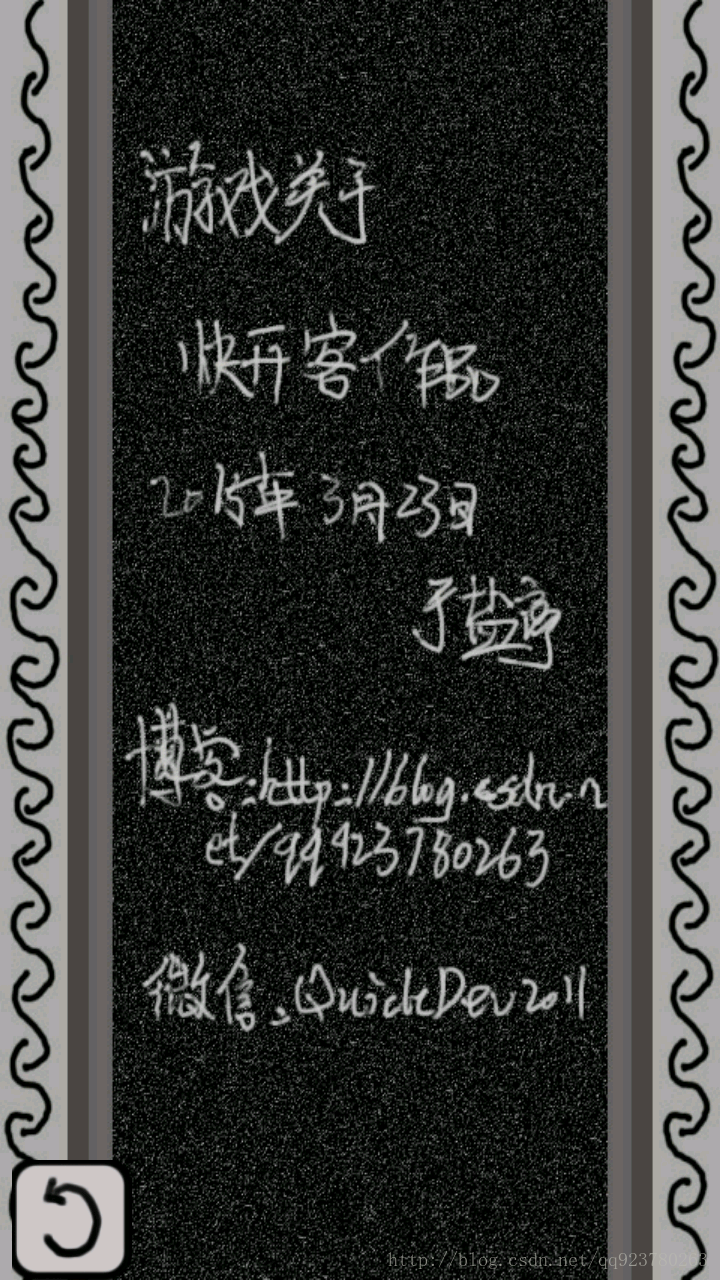 游戏关于
快开客作品
2015年3月23日
于盐亭
博客:http://blog.csdn.n
et/qq923780263
微信:QuickDev2011
http://blog.csdn.net/qq923780263